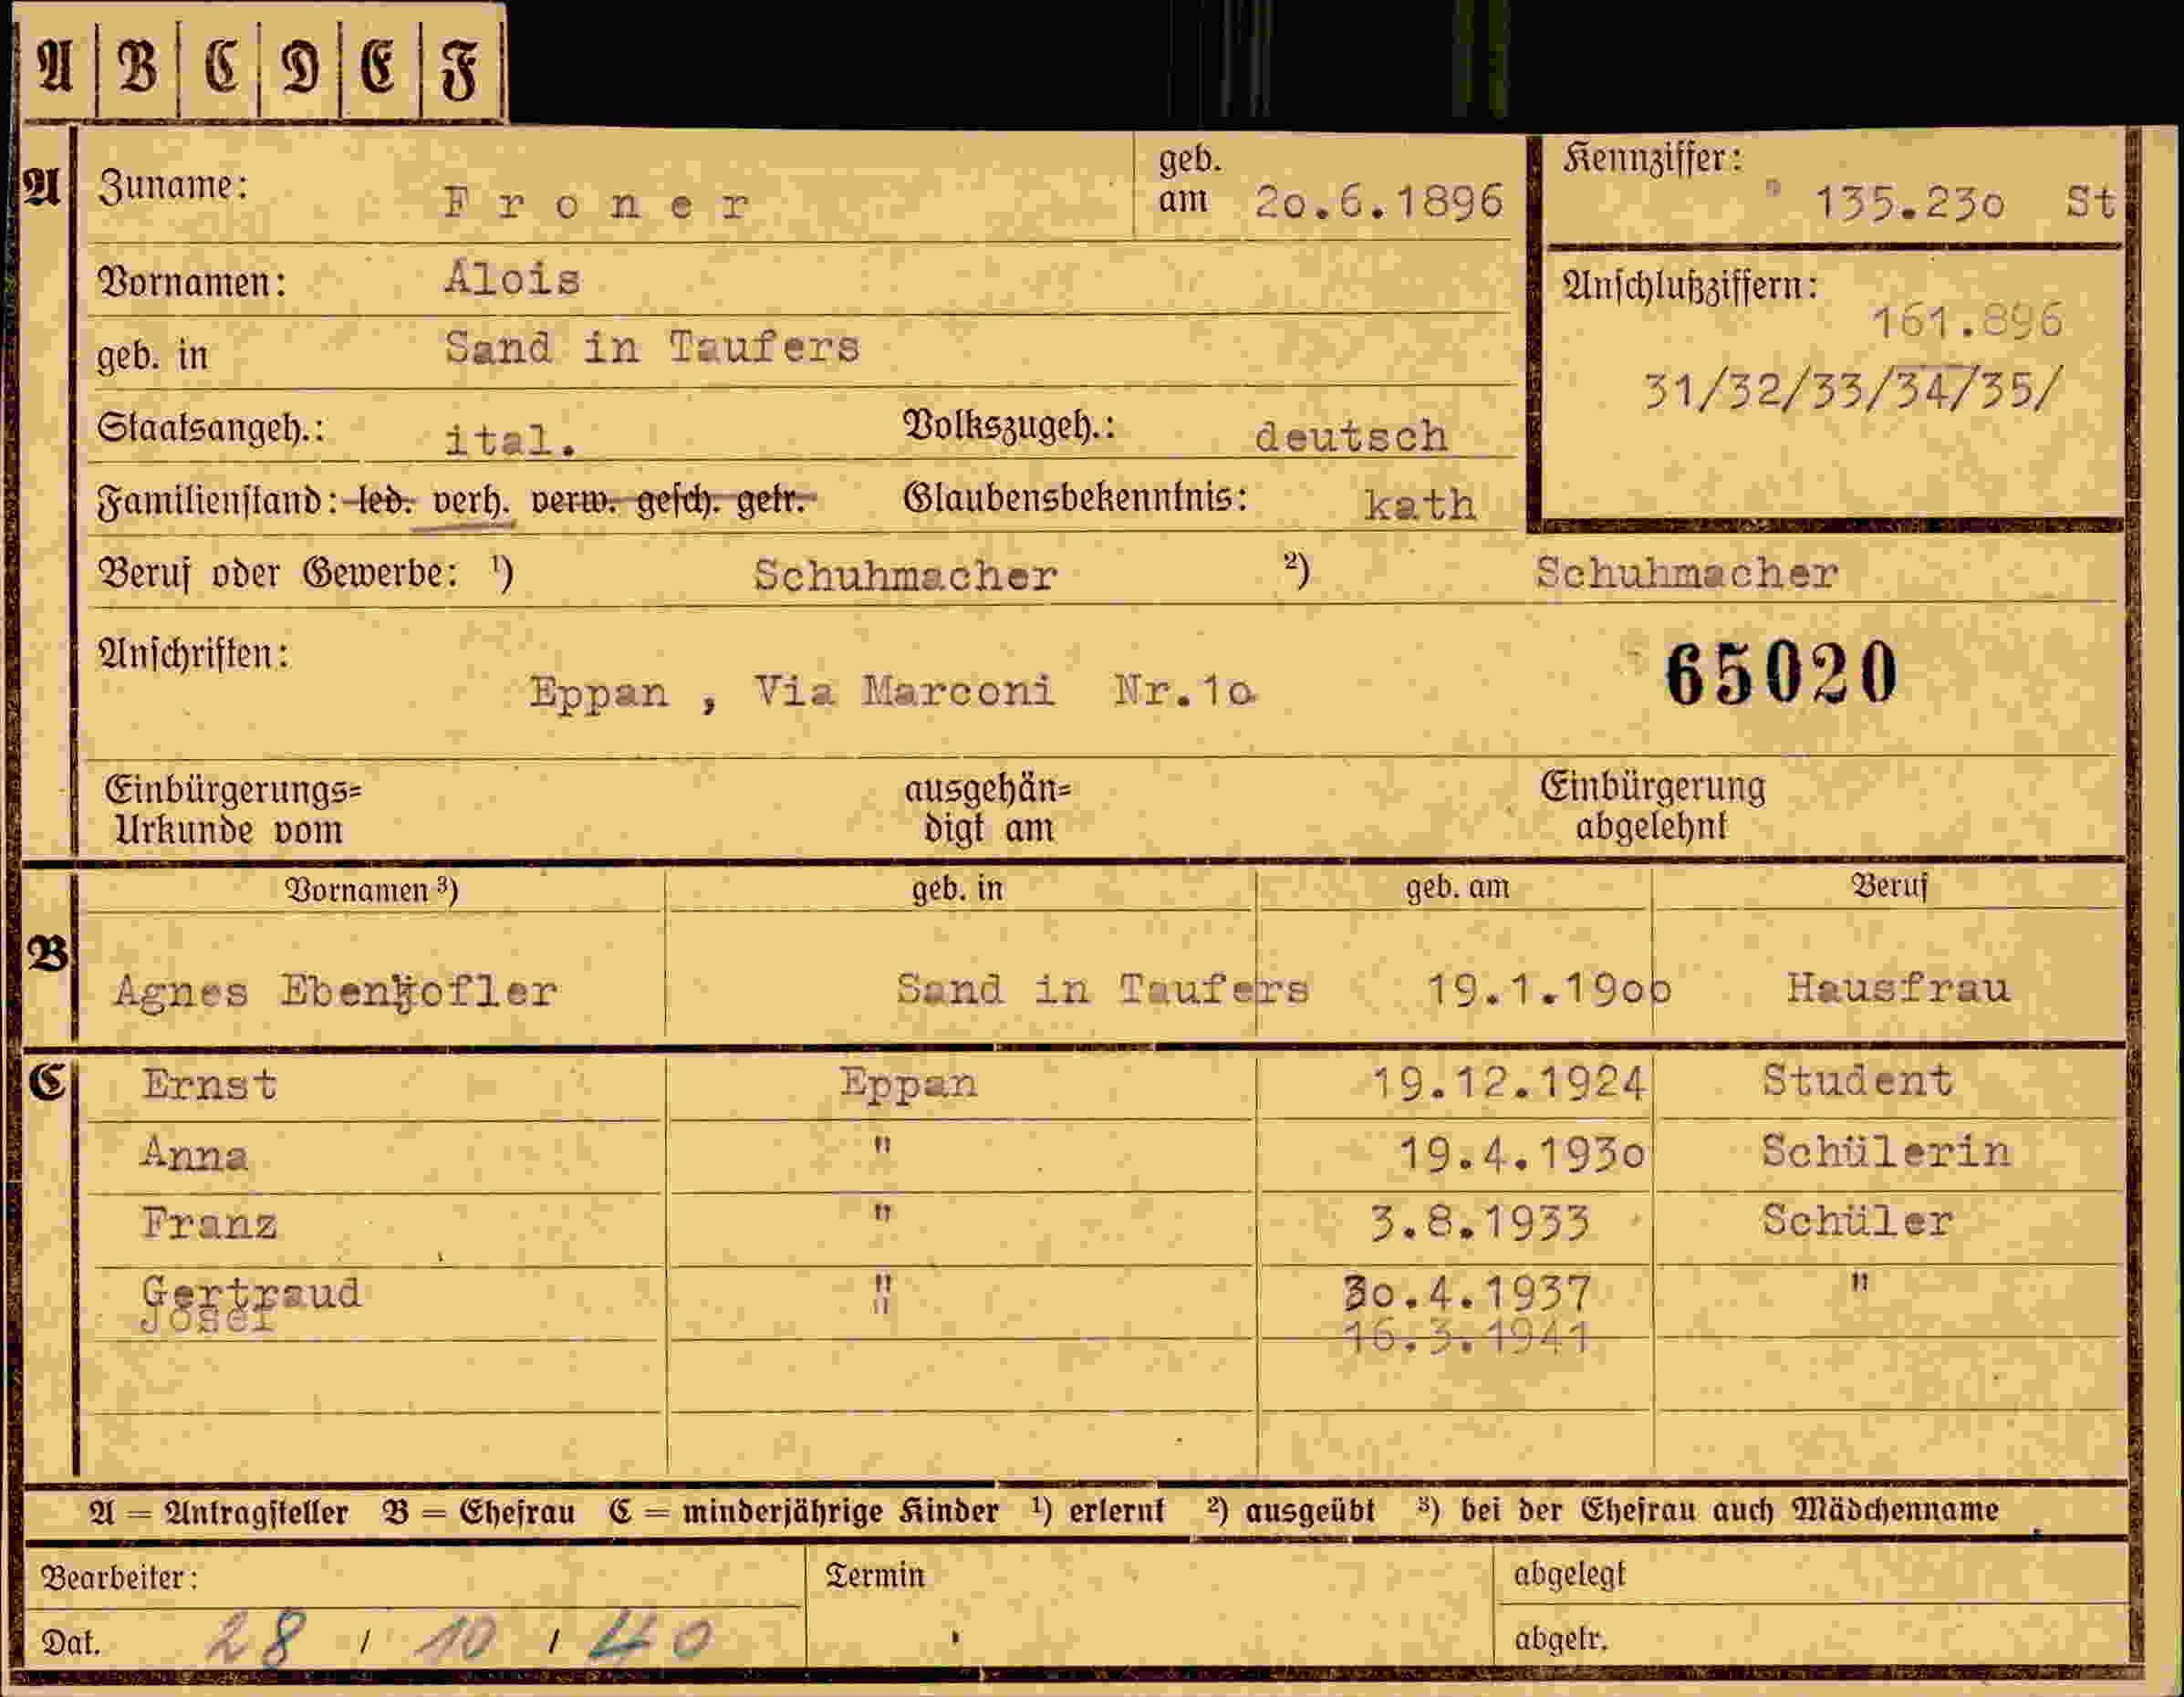 A B C D E F
A Zuname: Froner geb. am 20.6.1896 Kennziffer: 135.230 St
Vornamen: Alois Anschlußziffern: 161.896
geb. in Sand in Taufers 31/32/33/34/35/
Staatsangeh.: ital. Volkszugeh.: deutsch
Familienstand: led. verh. verw. gesch. getr. Glaubensbekenntnis: kath
Beruf oder Gewerbe: ¹) Schuhmacher ²) Schuhmacher
Anschriften: Eppan , Via Marconi Nr.10 65020
Einbürgerungs= ausgehän= Einbürgerung
Urkunde vom digt am abgelehnt
Vornamen ³) geb. in geb. am Beruf
B Agnes Ebenhofler Sand in Taufers 19.1.1900 Hausfrau
C Ernst Eppan 19.12.1924 Student
Anna " 19.4.1930 Schülerin
Franz " 3.8.1933 Schüler
Gertraud " 30.4.1937 "
Josef " 16.3.1941
A = Antragsteller B = Ehefrau C = minderjährige Kinder ¹) erlernt ²) ausgeübt ³) bei der Ehefrau auch Mädchenname
Bearbeiter: Termin abgelegt
Dat. 28 / 10 / 40 abgetr.